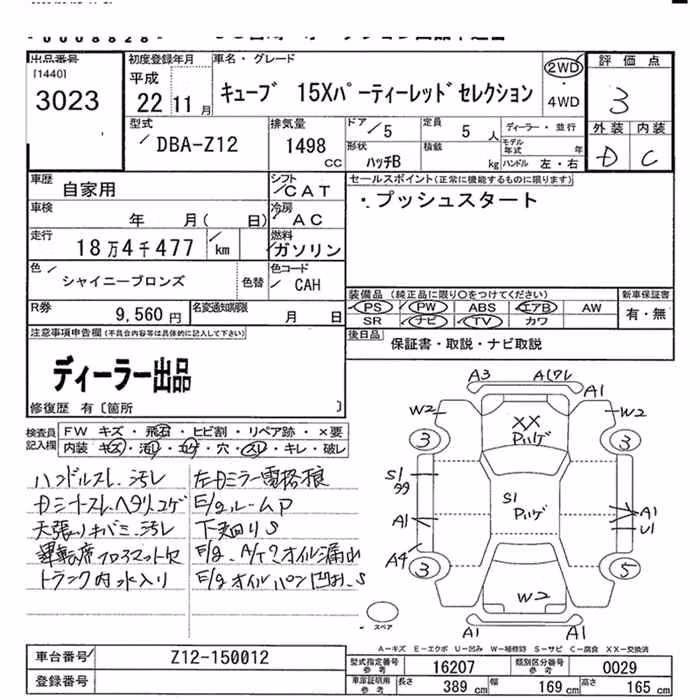 出品番号
[1440]
3023
初度登録年月
平成
22 11月
車名・グレード
キューブ 15Xパーティーレッドセレクション
2WD
・
4WD
評価点
3
外装 内装
D C
型式
DBA-Z12
排気量
1498
CC
ドア
/5
定員
5 人
ディーラー・並行
モデル年式 年
形状
ハッチB
積載
kg
ハンドル 左・右
車歴
自家用
シフト
CAT
セールスポイント(正常に機能するものに限ります)
・プッシュスタート
車検
年 月( 日)
冷房
AC
走行
18万4千477 km
燃料
ガソリン
色
シャイニーブロンズ
色替
色コード
CAH
R券
9,560 円
名変通知期限
月 日
装備品 (純正品に限り○をつけてください)
PS PW ABS エアB AW
SR ナビ TV カワ
新車保証書
有・無
後日品
保証書・取説・ナビ取説
注意事項申告欄(不具合内容等は具体的に記入して下さい)
ディーラー出品
修復歴 有〔箇所 〕
検査員
記入欄
FW キズ・飛石・ヒビ割・リペア跡・×要
内装 キズ・汚れ・コゲ・穴・スレ・キレ・破レ
ハンドルスレ、汚レ
天張りキバミ、汚レ
トランク内水入り
左Dミラー電格損
E/gルームP
下廻りS
E/g、A/T?オイル漏れ
A3
A1
A1
W2
W2
XX
3
3
S1
A1
A1
U1
A4
S1
3
5
W2
A1
A1
スペア
A=キズ E=エクボ U=凹み W=補修跡 S=サビ C=腐食 XX=交換済
車台番号
Z12-150012
登録番号
型式指定番号
参考
16207
類別区分番号
参考
0029
車庫証明用
参考
長さ
389 cm
幅
169 cm
高さ
165 cm